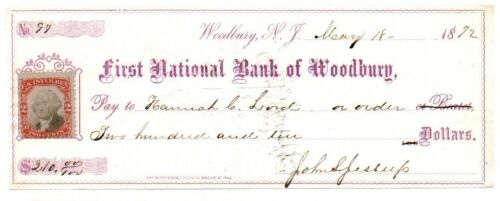 No. 97
Woodbury, N. J. May 18 - 1872
First National Bank of Woodbury,
Pay to Hannah C. Lord or order or Bearer
Two hundred and ten Dollars.
$210.00/100
John S Jessup